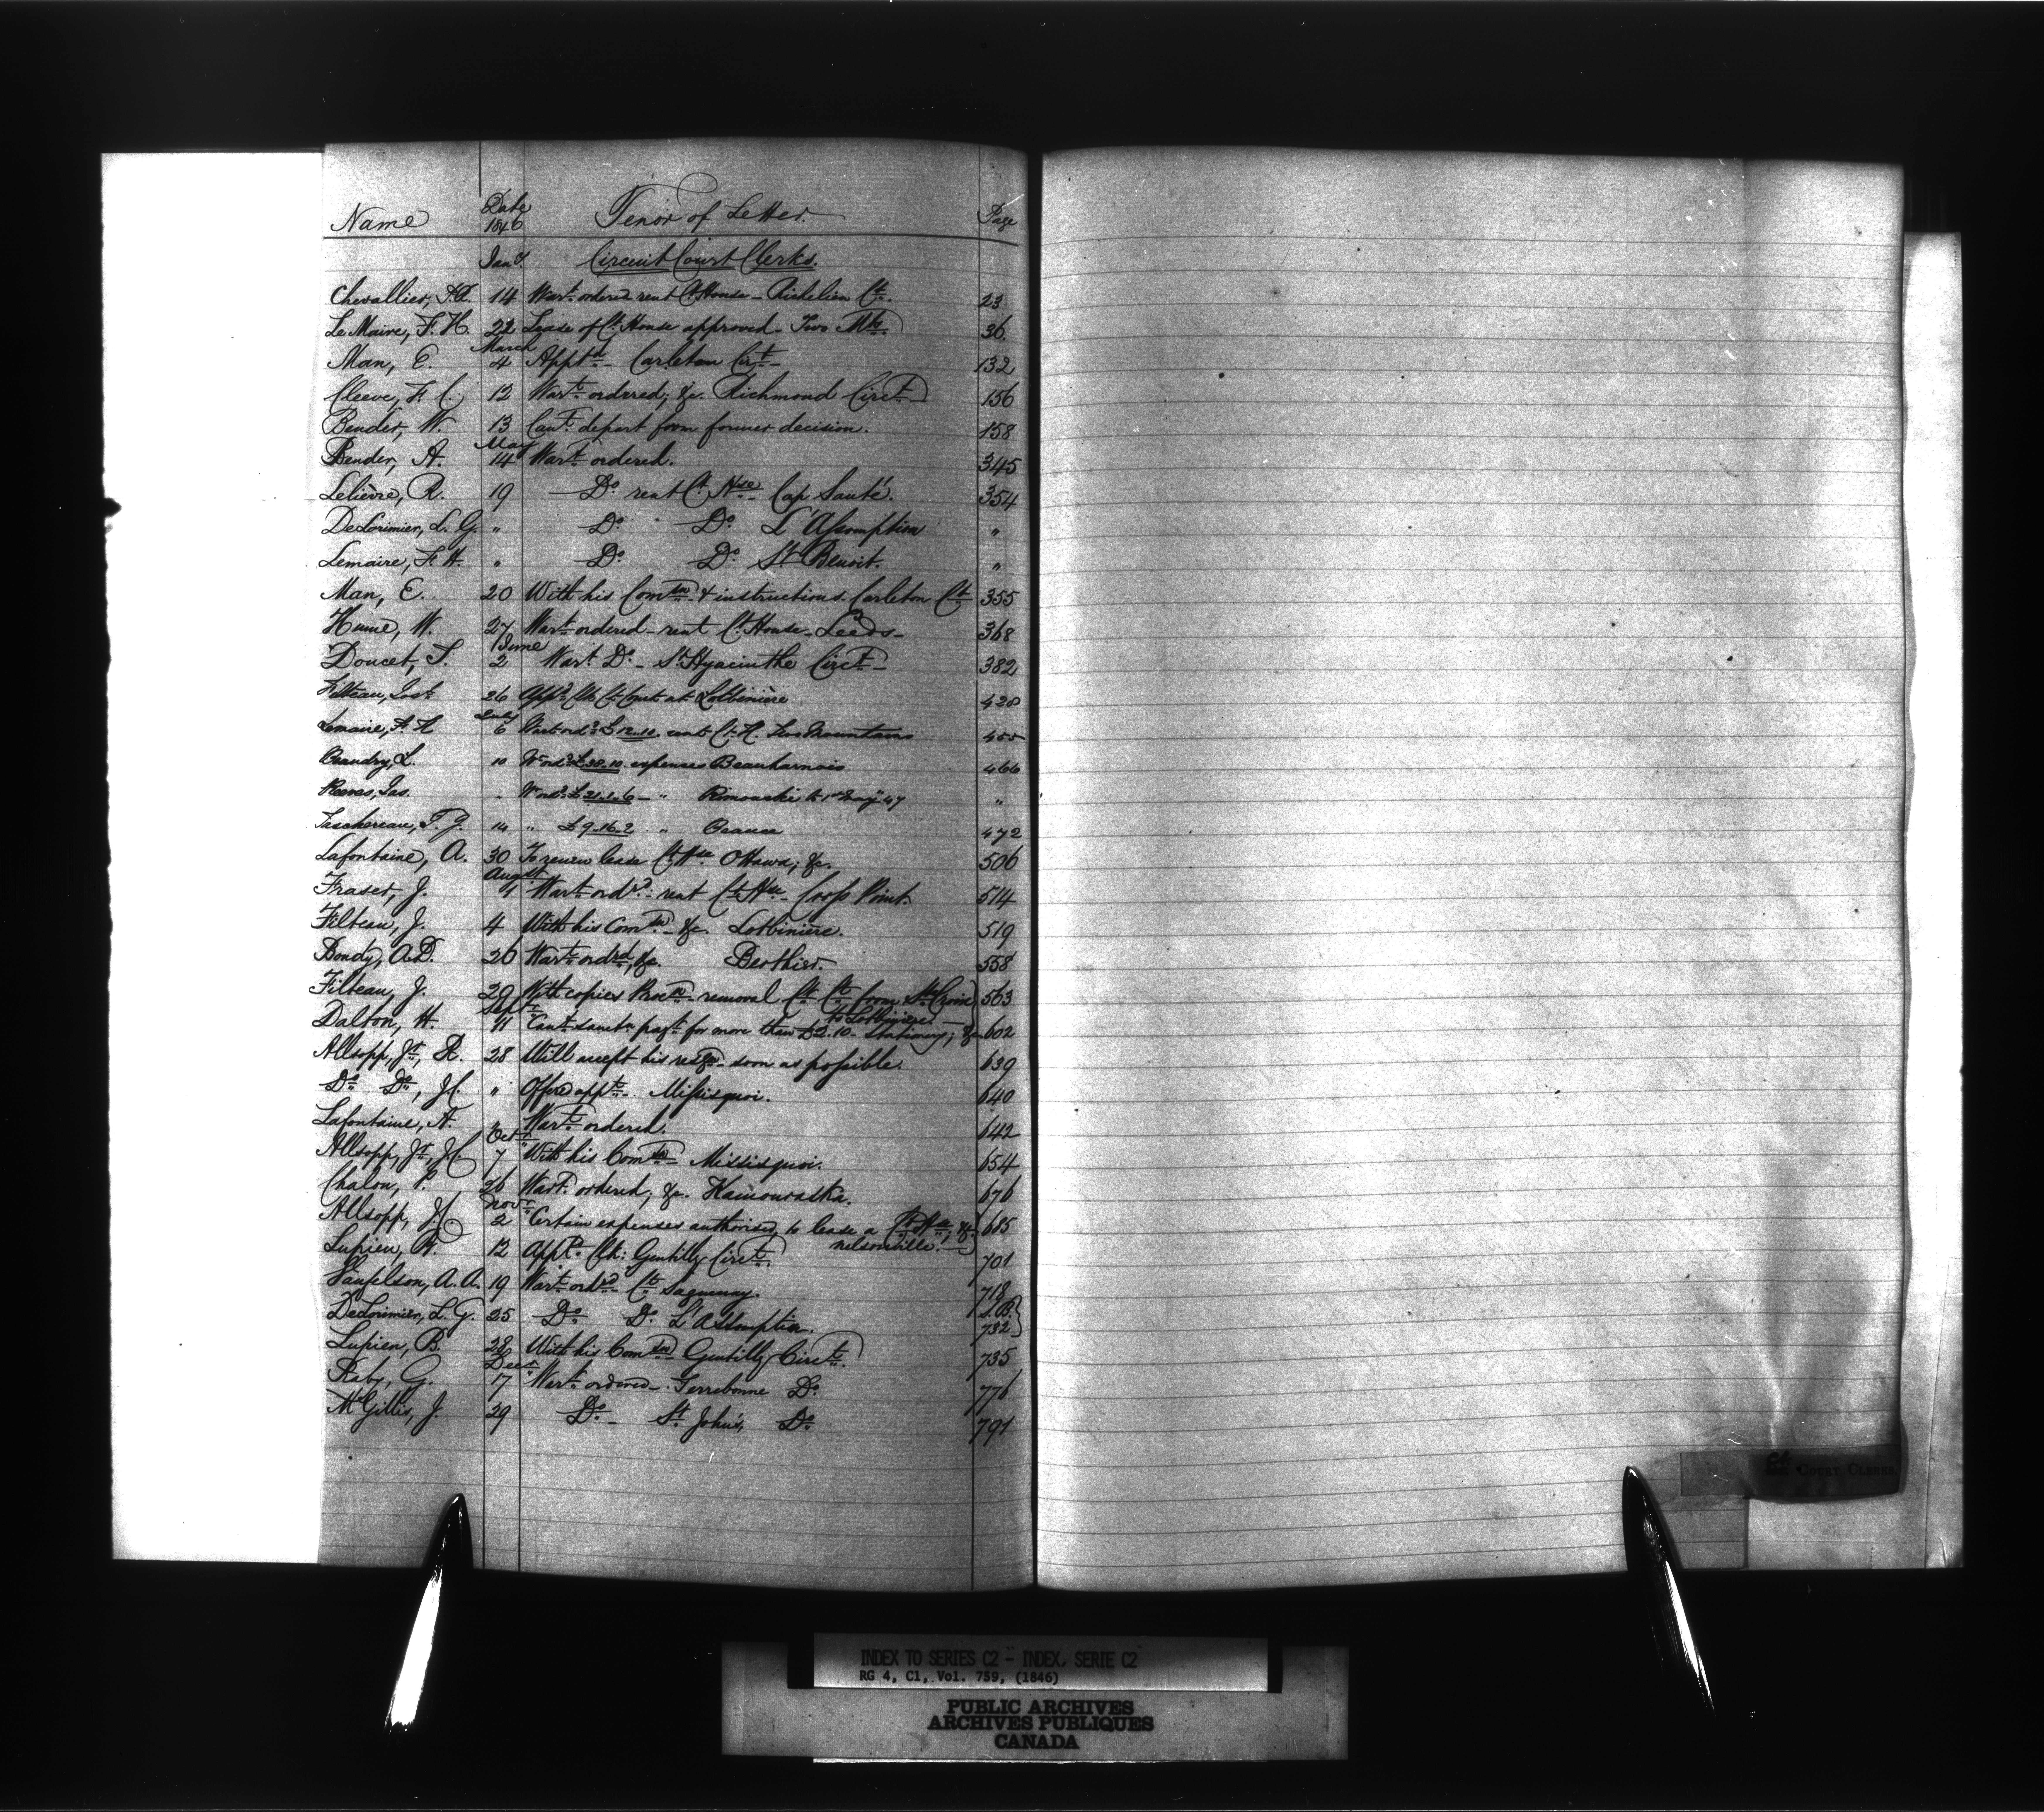 Name Date 1846 Tenor of Letter Page
Jany. Circuit Court Clerks.
Chevallier, 14 Wart. ordered rent Ct. House - Richelieu Ct. 23
Le Maire, F. H. 22 Lease of Ct. House approved - Two Mts. 36.
March
Man, E. 4 Apptd. - Carleton Cirt. - 132
Cleeve, F. C. 12 Warts. ordered; &c. Richmond Circt. 156
Bender, W. 13 Cant. depart from former decision. 158
May
Bender, A. 14 Wart. ordered. 345
Lelièvre, R. 19 Do. rent Ct. Hse. Cap Santé. 354
DeLorimier, L. G. " Do. Do. L'Assomption "
Lemaire, F. H. " Do. Do. St. Benoit. "
Man, E. 20 With his Comsn. & instructions. Carleton Ct. 355
Hume, W. 27 Wart. ordered - rent Ct. House - Leeds - 368
June
Doucet, T. 2 Wart. Do. - St. Hyacinthe Circt. - 382
Filteau, Josh. 26 Appd. Clk Ct. Court at Lotbinière 428
July
Lemaire, F. H. 6 Wart. ord. £12.10. rent Ct. H. Two Mountains 455
Beaudry, L. 10 W. ord. £38.10. expenses Beauharnois 466
Reeves, Jas. " W. ord. £21.1.6 - " Rimouski to 1st Jany. 47 "
Taschereau, T. J. 14 " £9.16.2 " Beauce 472
Lafontaine, A. 30 To renew lease Ct. Hse. Ottawa; &c. 506
August
Fraser, J. 1 Wart. ordrd. rent Ct. Hse. - Cross Point. 514
Filteau, J. 4 With his Comsn. - &c. Lotbinière. 519
Bondy, A.D. 26 Wart. ordrd, &c. Berthier. 558
Filteau, J. 29 With copies Procn. removal Ct. Ct. from Ste. Croix 563
to Lotbinière.
Septr.
Dalton, H. 11 Cant. sanctn. payt. for more than £2.10. Stationery; &c. 602
Allsopp, Jr., R. 28 Will accept his resign. soon as possible. 639
Do. Do., J.C. " Offered appt. Missisquoi. 640
Lafontaine, A. " Wart. ordered. 642
Octr.
Allsopp, Jr., J.C. 7 With his Comsn. Missisquoi. 654
Chalou, P. 26 Wart. ordered; &c. Kamouraska. 676
Novr.
Allsopp, J.C. 2 Certain expenses authorised, to lease a Ct. Hse., &c. 685
Nelsonville.
Lupien, B. 12 Apptd. Clk: Gentilly Circt. 701
Vanfelson, A. A. 19 Wart. ordrd. Ct. Saguenay. 718
DeLorimier, L. G. 25 Do. Do. L'Assomption. L.B. 732
Lupien, B. 28 With his Comsn. Gentilly Circt. 735
Decr.
Raby, G. 17 Wart. ordered - Terrebonne Do. 776
McGillis, J. 29 Do. - St. John's, Do. 791
Court Clerks.
INDEX TO SERIES C2 - INDEX, SERIE C2
RG 4, C1, Vol. 759, (1846)
PUBLIC ARCHIVES
ARCHIVES PUBLIQUES
CANADA